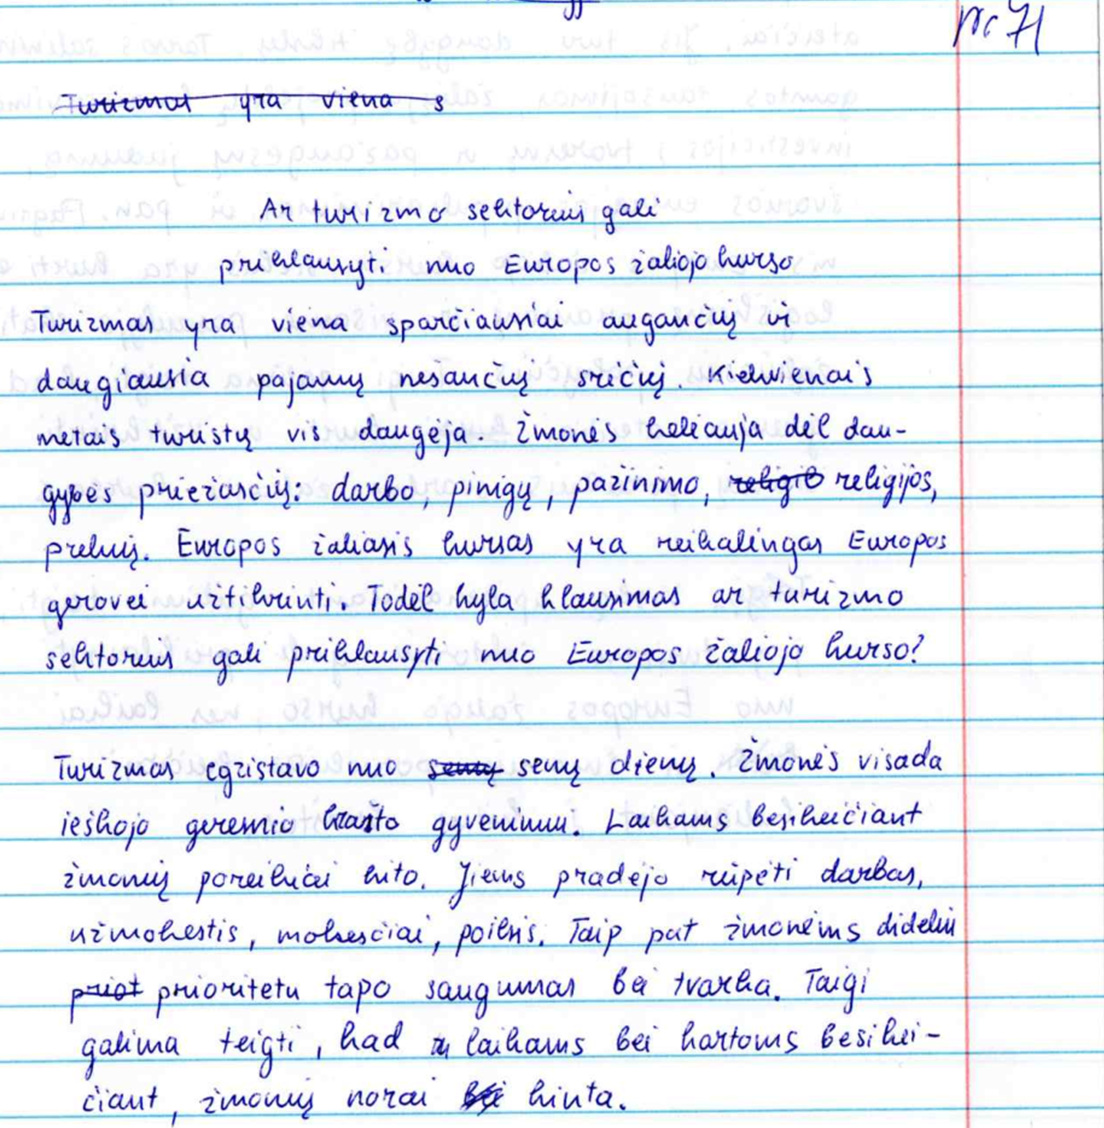 nr 71
Turizmas yra viena s
Ar turizmo sektorius gali
priklausyti nuo Europos žaliojo kurso
Turizmas yra viena sparčiausiai augančių ir
daugiausia pajamų nešančių sričių. Kiekvienais
metais turistų vis daugėja. Žmonės keliauja dėl dau-
gybės priežasčių: darbo, pinigų, pažinimo, religib religijos,
prekių. Europos žaliasis kursas yra reikalingas Europos
gerovei užtikrinti. Todėl kyla klausimas ar turizmo
sektorius gali priklausyti nuo Europos žaliojo kurso?
Turizmas egzistavo nuo senų senų dienų. Žmonės visada
ieškojo geresnio krašto gyvenimui. Laikams besikeičiant
žmonių poreikiai kito. Jiems pradėjo rūpėti darbas,
užmokestis, mokesčiai, poilsis. Taip pat žmonėms dideliu
priot prioritetu tapo saugumas bei tvarka. Taigi
galima teigti, kad laikams bei kartoms besikei-
čiant, žmonių norai kinta.